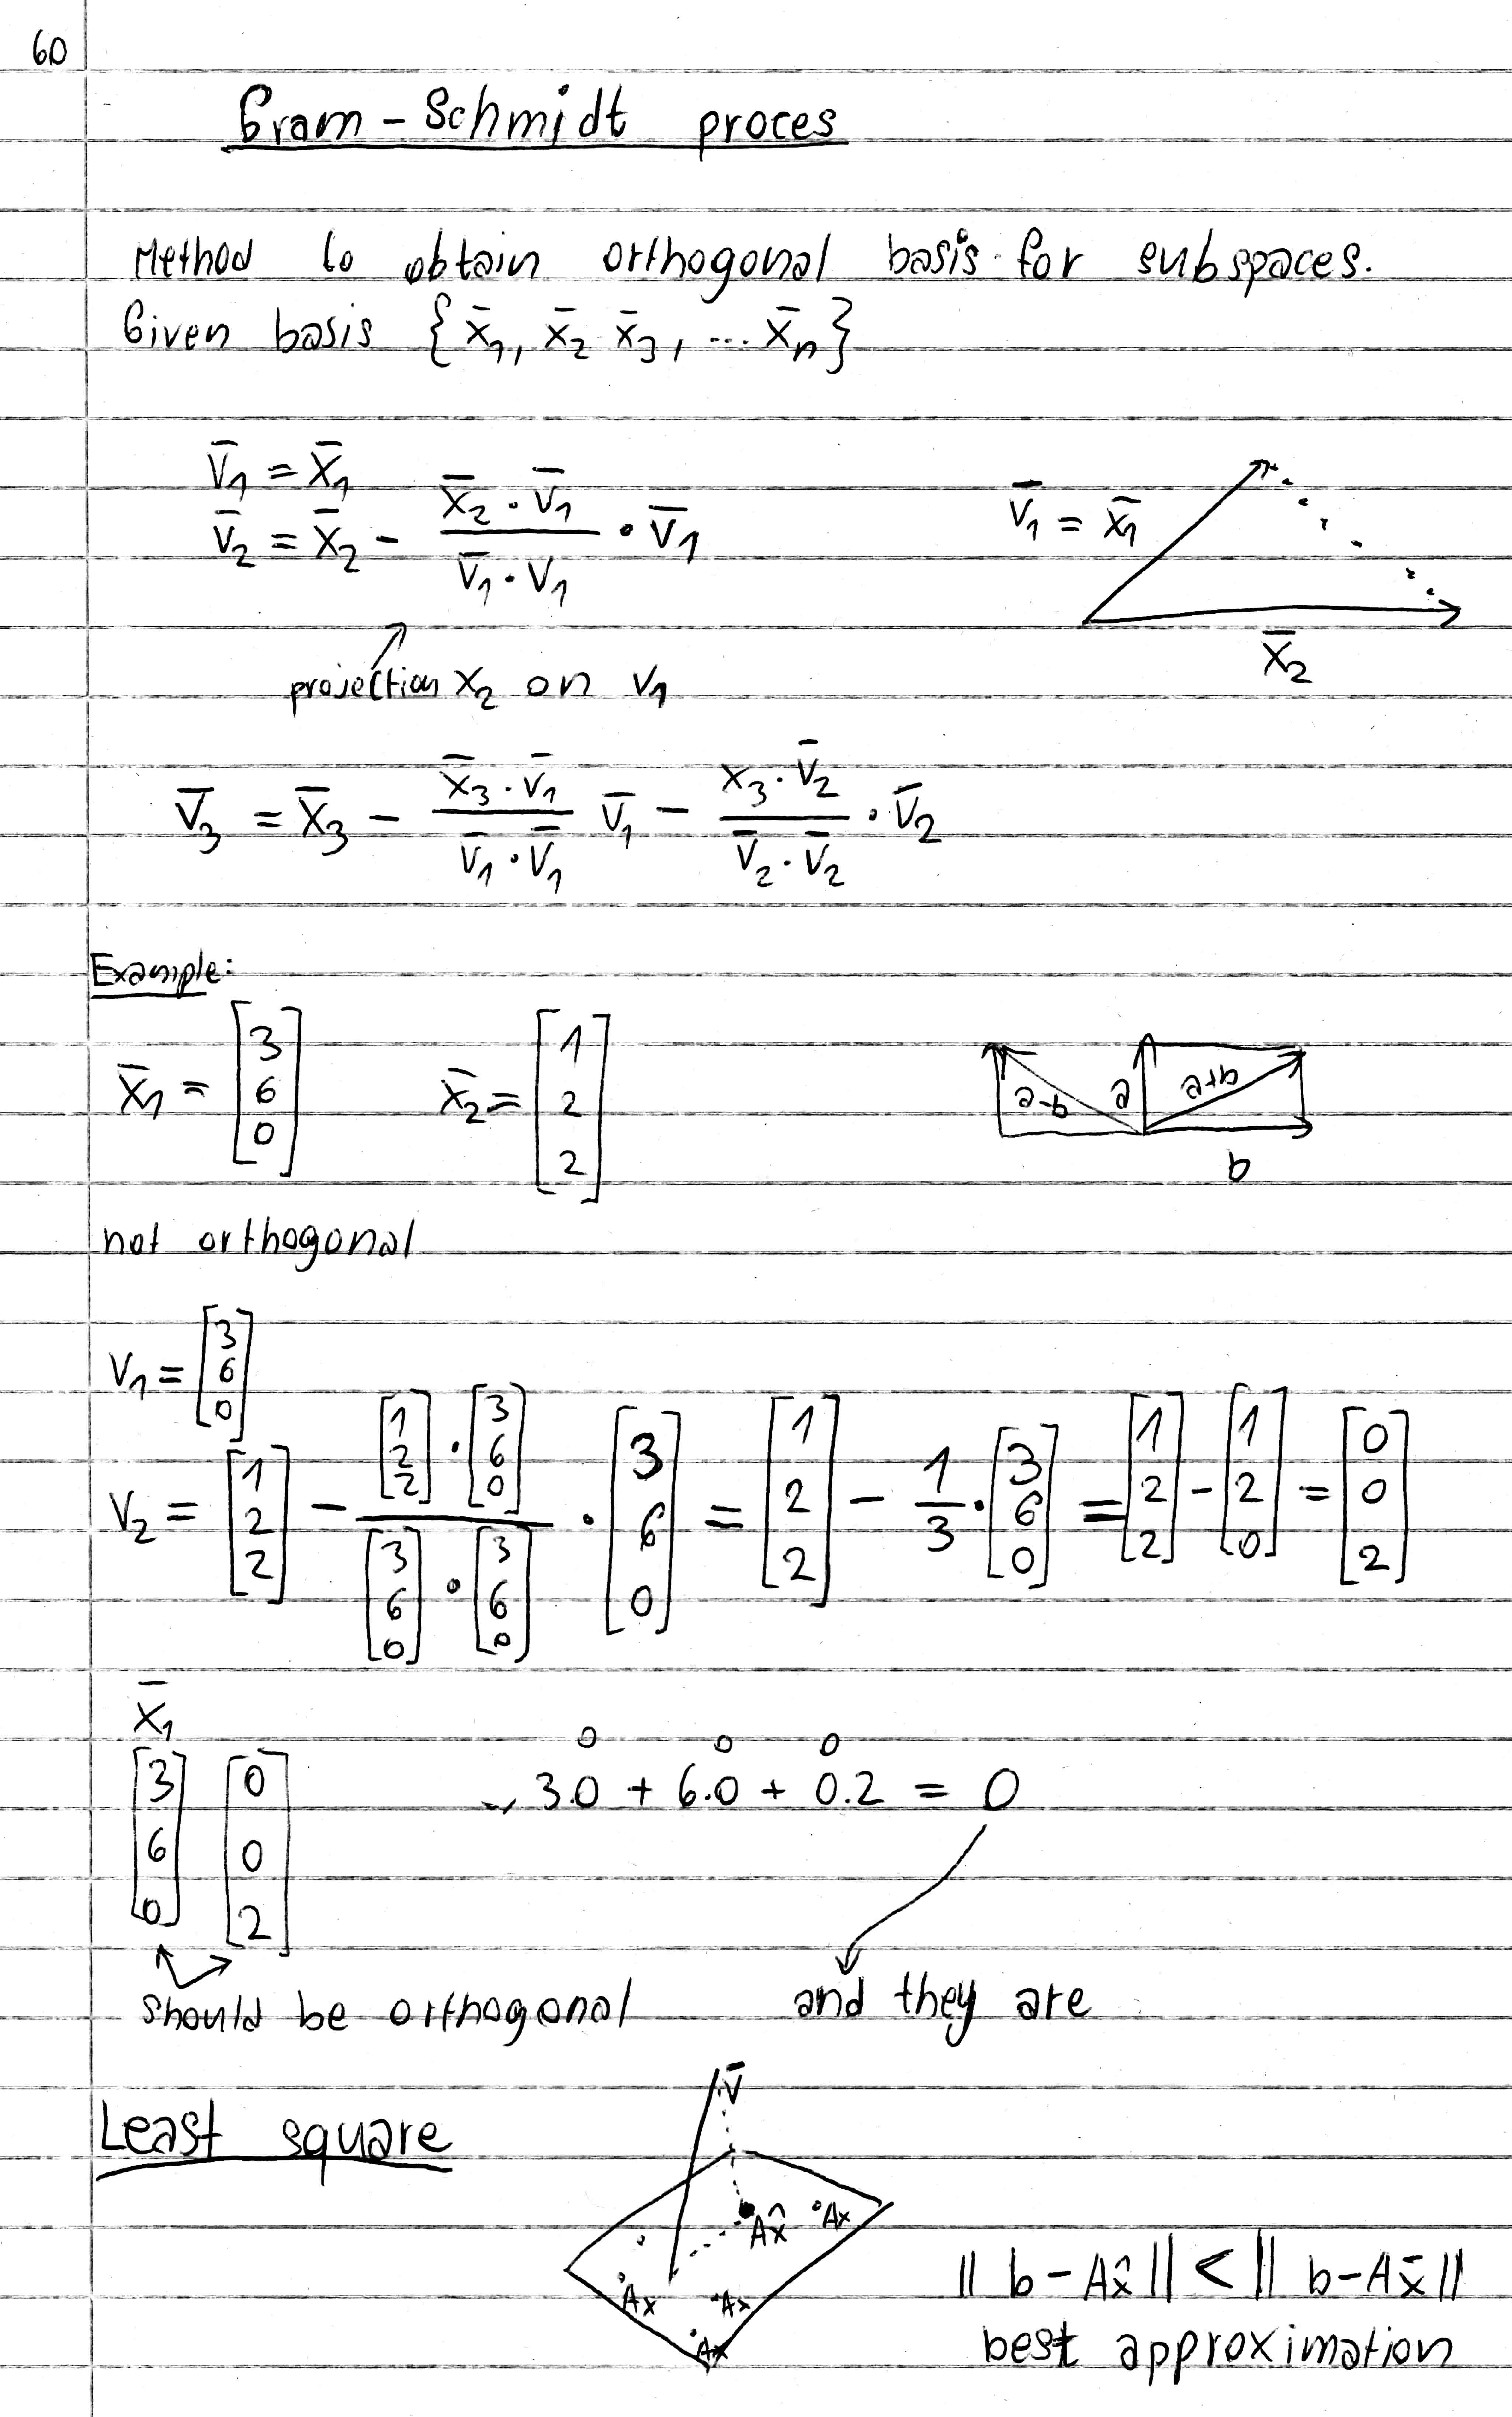 60
Gram - Schmidt proces
Method to obtain orthogonal basis for subspaces.
Given basis {x̄₁, x̄₂ x̄₃, ... x̄ₙ}
v̄₁ = x̄₁
v̄₂ = x̄₂ - (x̄₂ · v̄₁)/(v̄₁ · v₁) · v̄₁
v̄₁ = x̄₁
x̄₂
projection x₂ on v₁
v̄₃ = x̄₃ - (x̄₃ · v̄₁)/(v̄₁ · v̄₁) v̄₁ - (x₃ · v̄₂)/(v̄₂ · v̄₂) · v̄₂
Example:
x̄₁ = [3 6 0] x̄₂ = [1 2 2]
a-b a a+b
b
not orthogonal
v₁ = [3 6 0]
v₂ = [1 2 2] - ([1 2 2] · [3 6 0])/([3 6 0] · [3 6 0]) · [3 6 0] = [1 2 2] - 1/3 · [3 6 0] = [1 2 2] - [1 2 0] = [0 0 2]
x̄₁
0 0 0
[3 6 0] [0 0 2] 3.0 + 6.0 + 0.2 = 0
should be orthogonal and they are
Least square
v̄
Ax̂ Ax
Ax Ax
Ax
|| b - Ax̂ || < || b - Ax̄ ||
best approximation